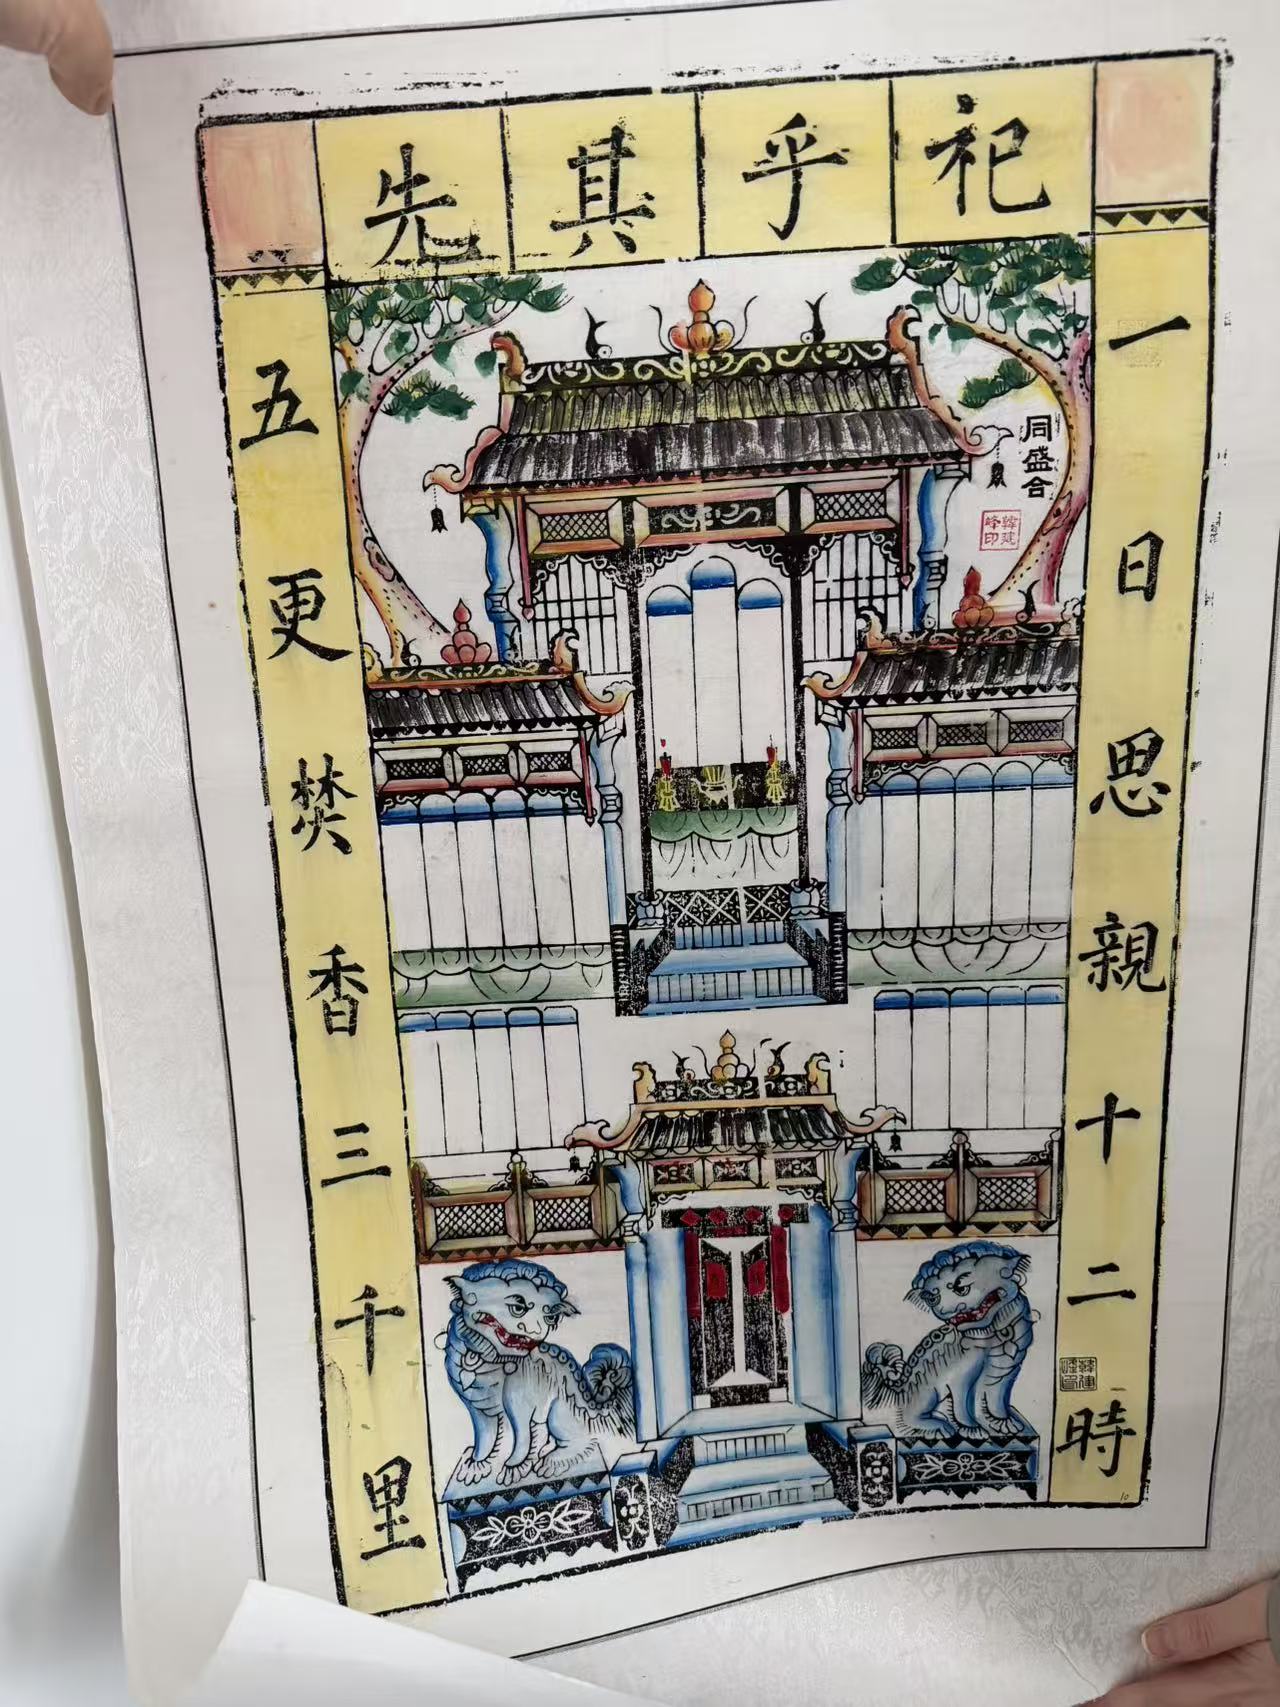 祀乎其先
一日思親十二時
五更焚香三千里
同盛合
韓建峰印
10